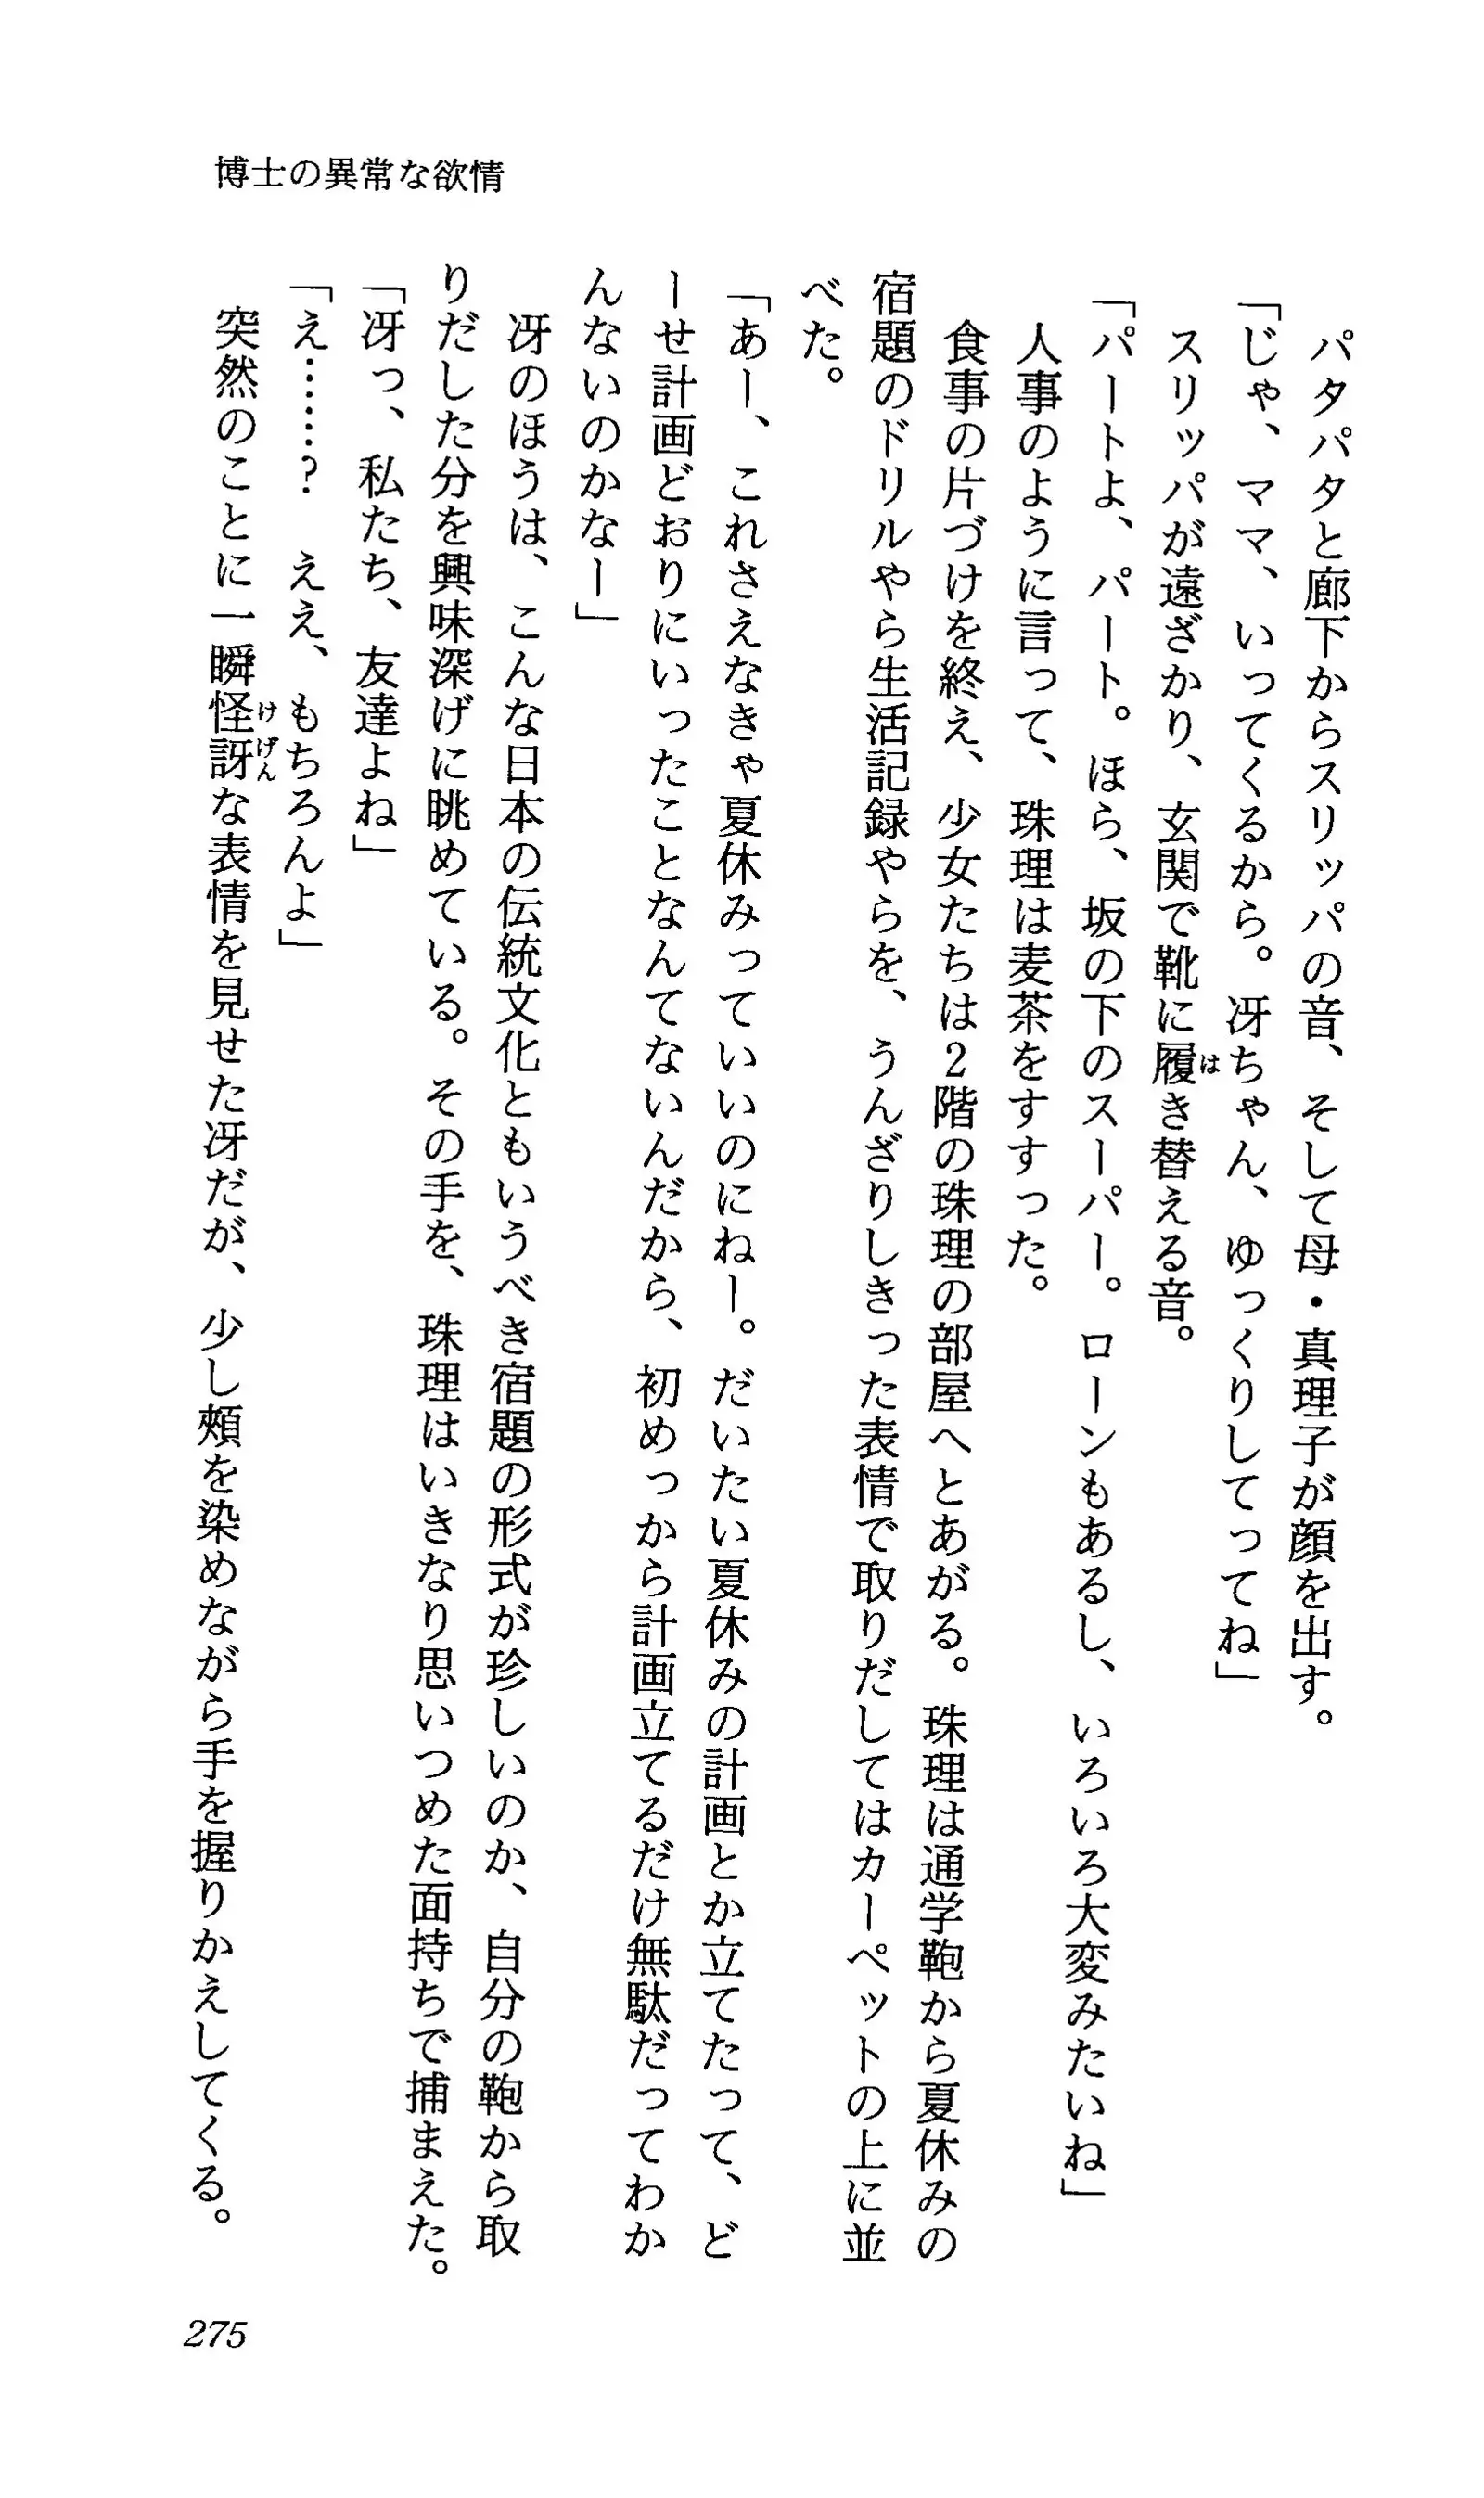 博士の異常な欲情
パタパタと廊下からスリッパの音、そして母・真理子が顔を出す。
「じゃ、ママ、いってくるから。冴ちゃん、ゆっくりしてってね」
スリッパが遠ざかり、玄関で靴に履き替える音。
「パートよ、パート。ほら、坂の下のスーパー。ローンもあるし、いろいろ大変みたいね」
人事のように言って、珠理は麦茶をすすった。
食事の片づけを終え、少女たちは2階の珠理の部屋へとあがる。珠理は通学鞄から夏休みの
宿題のドリルやら生活記録やらを、うんざりしきった表情で取りだしてはカーペットの上に並
べた。
「あー、これさえなきゃ夏休みっていいのにねー。だいたい夏休みの計画とか立てたって、ど
ーせ計画どおりにいったことなんてないんだから、初めっから計画立てるだけ無駄だってわか
んないのかなー」
冴のほうは、こんな日本の伝統文化ともいうべき宿題の形式が珍しいのか、自分の鞄から取
りだした分を興味深げに眺めている。その手を、珠理はいきなり思いつめた面持ちで捕まえた。
「冴っ、私たち、友達よね」
「え……?　ええ、もちろんよ」
突然のことに一瞬怪訝な表情を見せた冴だが、少し頰を染めながら手を握りかえしてくる。
275